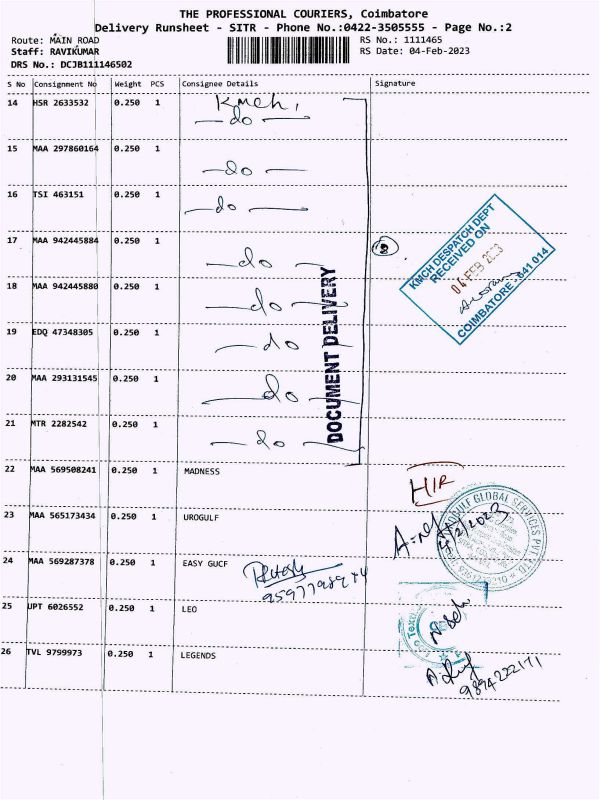 THE PROFESSIONAL COURIERS, Coimbatore
Delivery Runsheet - SITR - Phone No.:0422-3505555 - Page No.:2
Route: MAIN ROAD RS No.: 1111465
Staff: RAVIKUMAR RS Date: 04-Feb-2023
DRS No.: DCJB111146502
S No Consignment No Weight PCS Consignee Details Signature
14 HSR 2633532 0.250 1 KMCH,
do
15 MAA 297860164 0.250 1 do
16 TSI 463151 0.250 1 do
17 MAA 942445884 0.250 1 do
18 MAA 942445880 0.250 1 do
19 EDQ 47348305 0.250 1 do
20 MAA 293131545 0.250 1 do
21 MTR 2282542 0.250 1 do
DOCUMENT DELIVERY
KMCH DESPATCH DEPT
RECEIVED ON
04 FEB 2023
COIMBATORE - 641 014
22 MAA 569508241 0.250 1 MADNESS
HIR
23 MAA 565173434 0.250 1 UROGULF
GLOBAL SERVICES PVT LTD
24 MAA 569287378 0.250 1 EASY GUCF
25 UPT 6026552 0.250 1 LEO
26 TVL 9799973 0.250 1 LEGENDS
9894222171